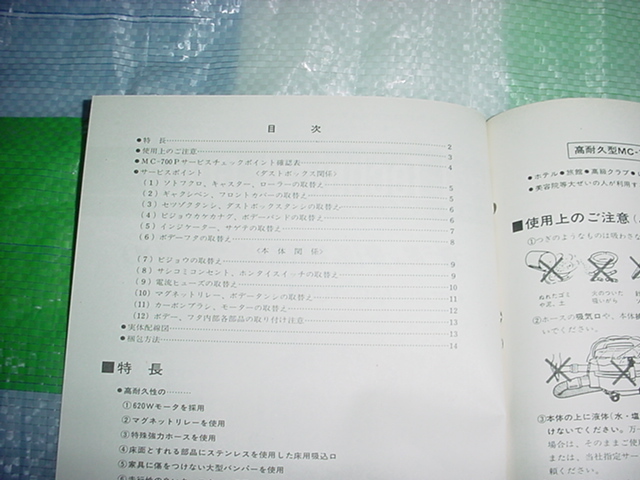 目 次
●特 長………2
●使用上のご注意………3
●MC-700Pサービスチェックポイント確認表………4
●サービスポイント 〈ダストボックス関係〉
(1) ソトフクロ、キャスター、ローラーの取替え………5
(2) ギャクシベン、フロントカバーの取替え………5
(3) セツゾクタンシ、ダストボックスタンシの取替え………6
(4) ビジョウカケカナグ、ボデーバンドの取替え………6
(5) インジケーター、サゲテの取替え………7
(6) ボデーフタの取替え………8
〈本 体 関 係〉
(7) ビジョウの取替え………9
(8) サシコミコンセント、ホンタイスイッチの取替え………9
(9) 電流ヒューズの取替え………10
(10) マグネットリレー、ボデータンシの取替え………11
(11) カーボンブラシ、モーターの取替え………12
(12) ボデー、フタ内部各部品の取り付け注意………13
●実体配線図………13
●梱包方法………14
■特 長
●高耐久性の………
①620Wモータを採用
②マグネットリレーを使用
③特殊強力ホースを使用
④床面とすれる部品にステンレスを使用した床用吸込口
⑤家具に傷をつけない大型バンパーを使用
高耐久型MC-
●ホテル●旅館●高級クラブ
●美容院等大ぜいの人が利用す
■使用上のご注意
①つぎのようなものは吸わさな
ぬれたゴミや泥、土
火のついた吸いがら
②ホースの吸気口や、本体
いでください。
③本体の上に液体(水・塩
けないでください。万一
場合は、そのままご使
または、当社指定サー
頼ください。